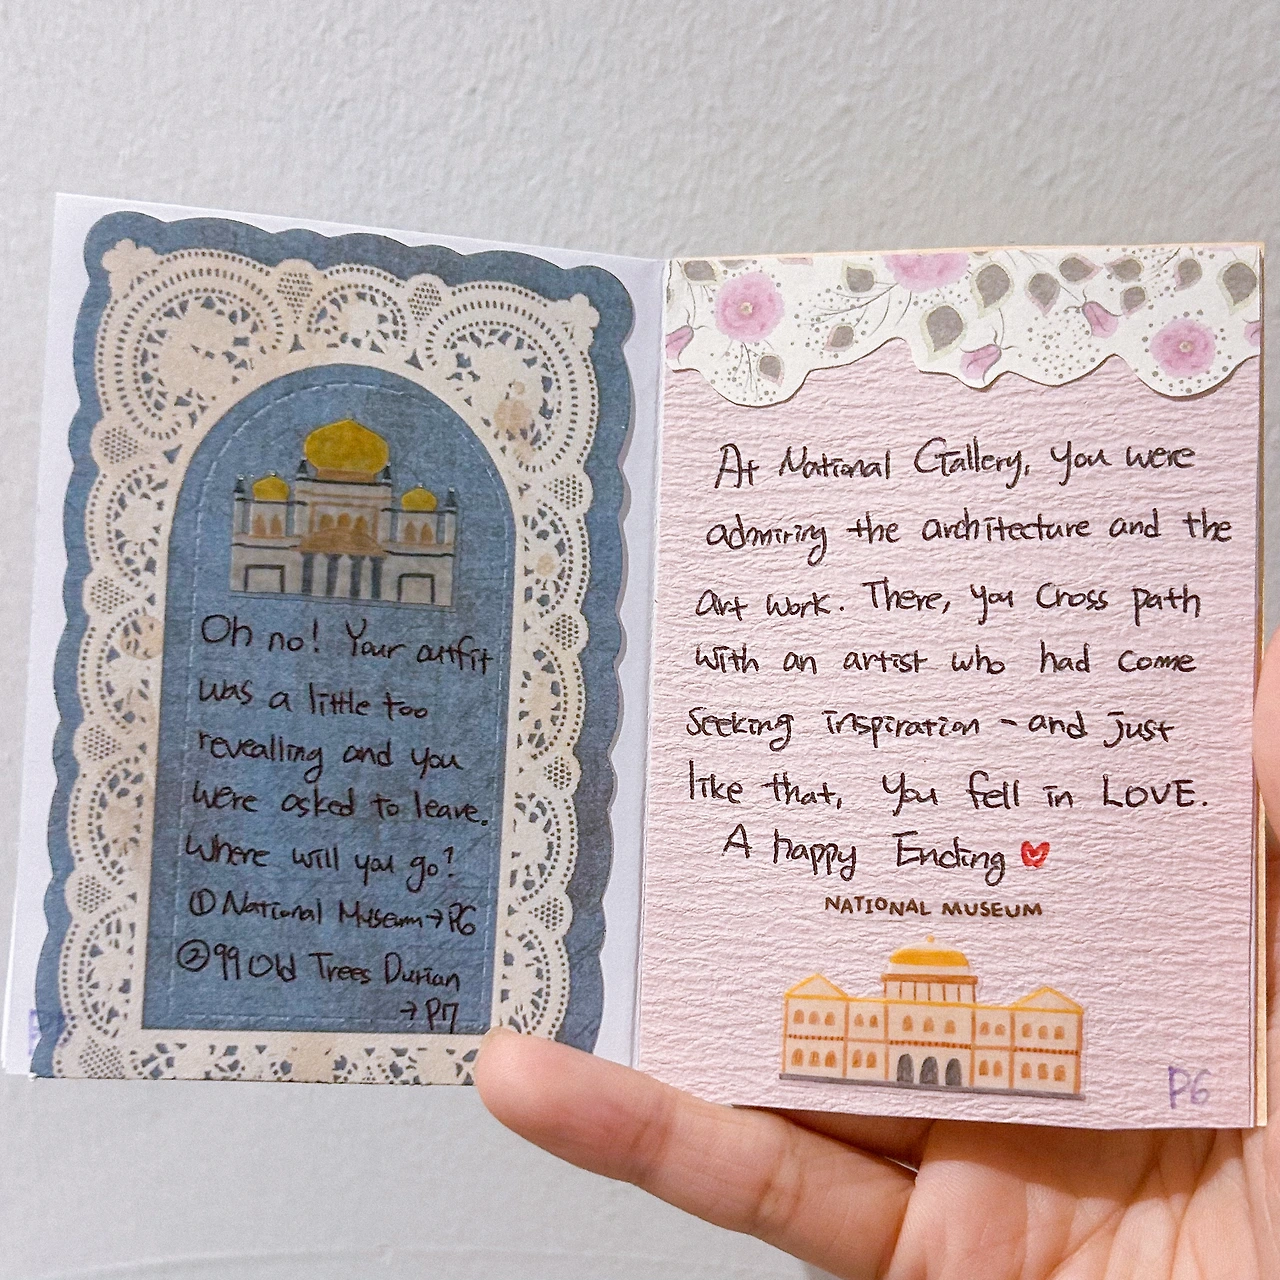 Oh no! Your outfit
was a little too
revealling and you
were asked to leave.
Where will you go?
① National Museum → P6
② 99 Old Trees Durian
→ P7
At National Gallery, you were
admiring the architecture and the
art work. There, you cross path
with an artist who had come
seeking inspiration - and just
like that, you fell in LOVE.
A happy Ending
NATIONAL MUSEUM
P6